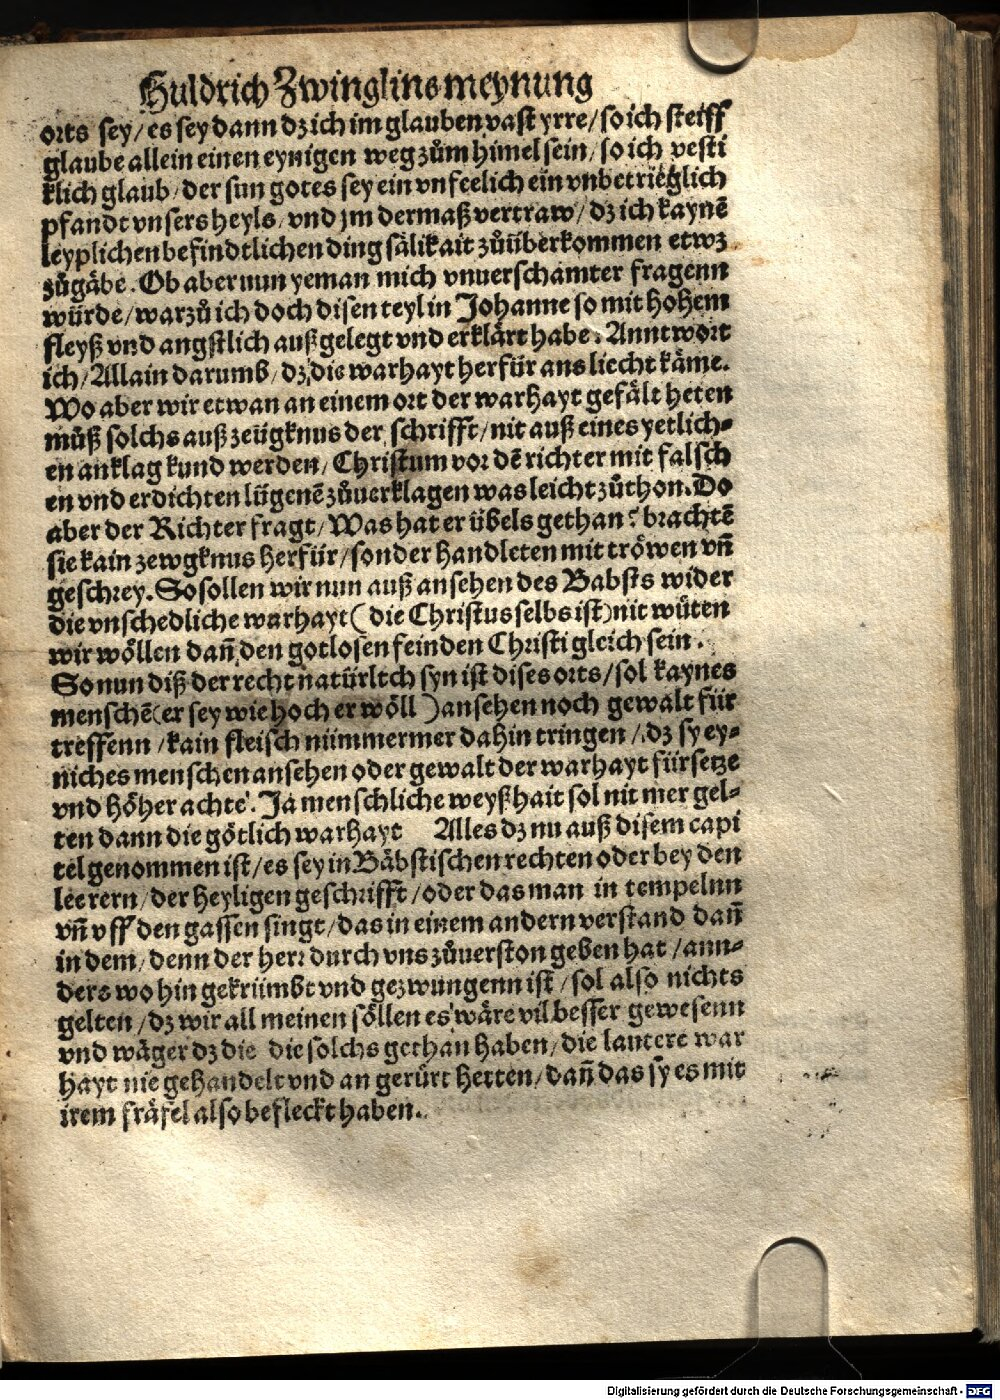 Huldrich Zwinglins meynung
orts sey / es sey dann dz ich im glauben vast yrre / so ich steiff
glaube allein einen eynigen weg zům himel sein / so ich vesti
klich glaub / der sun gotes sey ein vnfeelich ein vnbetrieglich
pfandt vnsers heyls / vnd jm dermaß vertraw / dz ich kaynē
leyplichen befindtlichen ding sälikait zůüberkommen etwz
zůgäbe. Ob aber nun yeman mich vnuerschamter fragenn
würde / warzů ich doch disen teyl in Johanne so mit hohem
fleyß vnd angstlich außgelegt vnd erklärt habe. Anntwort
ich / Allain darumb / dz die warhayt herfür ans liecht käme.
Wo aber wir etwan an einem ort der warhayt gefält heten
můß solchs auß zeügknus der schrifft / nit auß eines yetlich⸗
en anklag kund werden / Christum vor dē richter mit falsch
en vnd erdichten lügenē zůuerklagen was leicht zůthon. Do
aber der Richter fragt / Was hat er übels gethan? brachtē
sie kain zewgknus herfür / sonder handleten mit tröwen vn̄
geschrey. So sollen wir nun auß ansehen des Babsts wider
die vnschedliche warhayt ( die Christus selbs ist) nit wüten
wir wöllen dan̄ den gotlosen feinden Christi gleich sein.
So nun diß der recht natürltch syn ist dises orts / sol kaynes
menschē (er sey wie hoch er wöll ) ansehen noch gewalt für
treffenn / kain fleisch nümmermer dahin tringen / dz sy ey⸗
niches menschen ansehen oder gewalt der warhayt fürsetze
vnd höher achte. Ja menschliche weyßhait sol nit mer gel⸗
ten dann die götlich warhayt Alles dz nu auß disem capi
tel genommen ist / es sey in Bäbstischen rechten oder bey den
leerern / der heyligen geschrifft / oder das man in tempelnn
vn̄ vff den gassen singt / das in einem andern verstand dan̄
in dem / denn der herr durch vns zůuerston geben hat / ann⸗
ders wo hin gekrümbt vnd gezwungenn ist / sol also nichts
gelten / dz wir all meinen söllen es wäre vil besser gewesenn
vnd wäger dz die die solchs gethan haben / die lautere war
hayt nie gehandelt vnd an gerürt hetten / dan̄ das sy es mit
irem fräfel also befleckt haben.
Digitalisierung gefördert durch die Deutsche Forschungsgemeinschaft - DFG